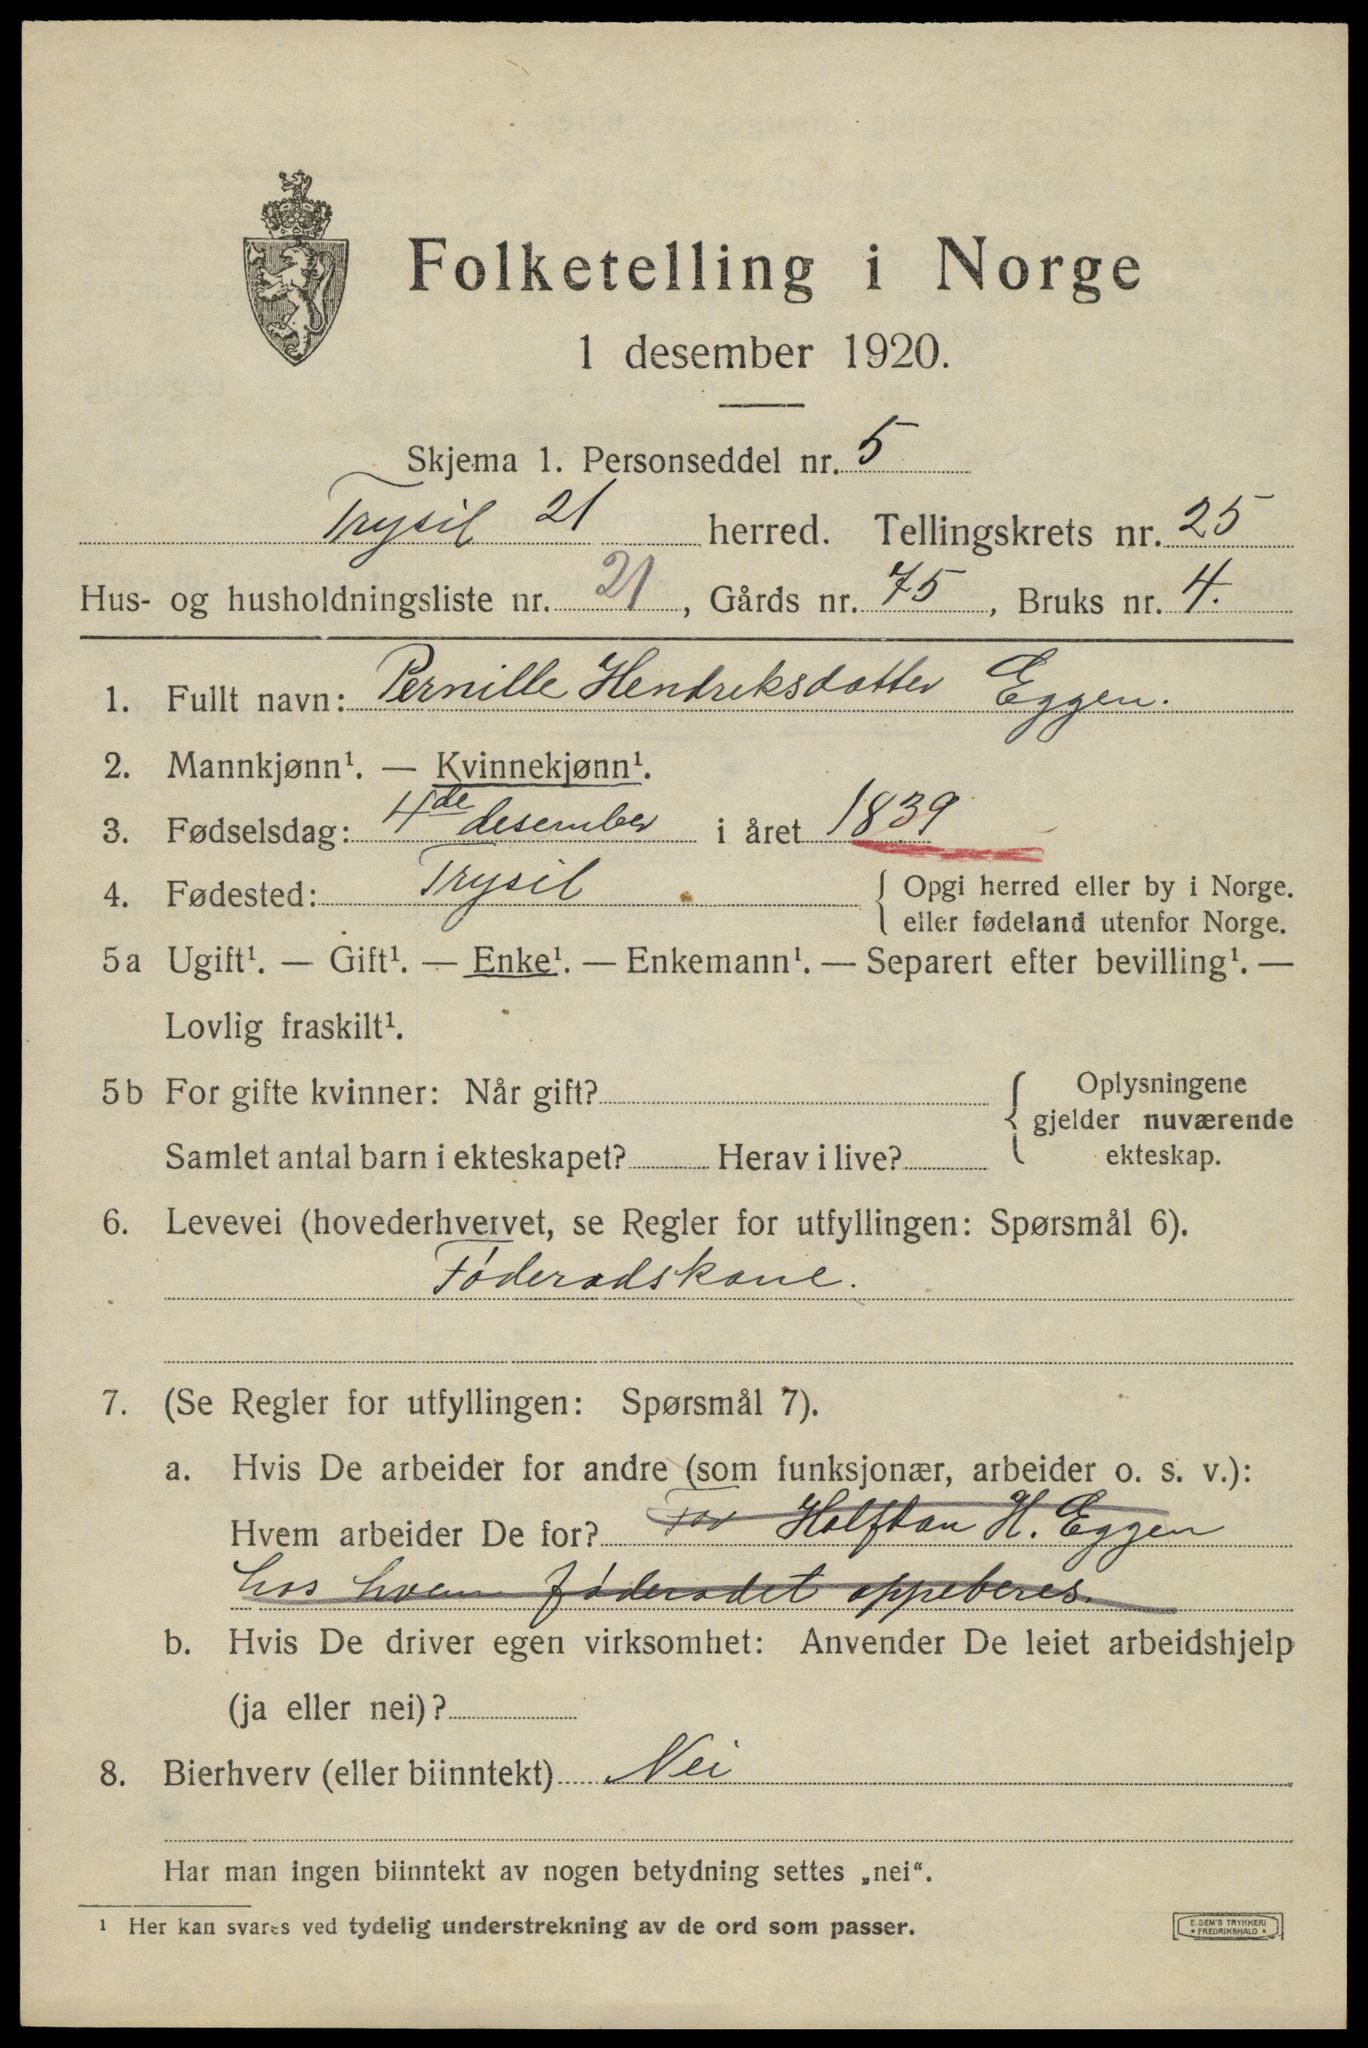 Folketelling i Norge
1 desember 1920.
Skjema 1. Personseddel nr. 5
Trysil 21 herred. Tellingskrets nr. 25
Hus- og husholdningsliste nr. 21, Gårds nr. 75, Bruks nr. 4.
1. Fullt navn: Pernille Hendriksdatter Eggen.
2. Mannkjønn¹. — Kvinnekjønn¹.
3. Fødselsdag: 4de desember i året 1839
4. Fødested: Trysil { Opgi herred eller by i Norge.
eller fødeland utenfor Norge.
5a Ugift¹. — Gift¹. — Enke¹. — Enkemann¹. — Separert efter bevilling¹. —
Lovlig fraskilt¹.
5b For gifte kvinner: Når gift? { Oplysningene
gjelder nuværende
Samlet antal barn i ekteskapet? Herav i live? ekteskap.
6. Levevei (hovederhvervet, se Regler for utfyllingen: Spørsmål 6).
Føderadskone.
7. (Se Regler for utfyllingen: Spørsmål 7).
a. Hvis De arbeider for andre (som funksjonær, arbeider o. s. v.):
Hvem arbeider De for? For Halfdan H. Eggen
hos hvem føderadet oppeberes.
b. Hvis De driver egen virksomhet: Anvender De leiet arbeidshjelp
(ja eller nei)?
8. Bierhverv (eller biinntekt) Nei
Har man ingen biinntekt av nogen betydning settes „nei“.
¹ Her kan svares ved tydelig understrekning av de ord som passer.
E. SEM'S TRYKKERI
FREDRIKSHALD